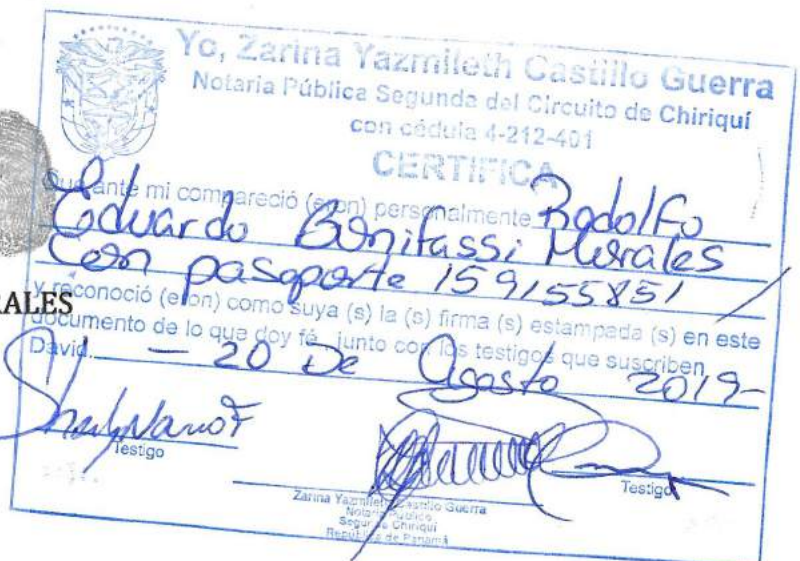 Yo, Zarina Yazmileth Castillo Guerra
Notaria Pública Segunda del Circuito de Chiriquí
con cédula 4-212-401
CERTIFICA
Que ante mi compareció (eron) personalmente Rodolfo
Eduardo Bonifassi Morales
con pasaporte 159155851
RALES
y reconoció (eron) como suya (s) la (s) firma (s) estampada (s) en este
documento de lo que doy fé, junto con los testigos que suscriben
David, - 20 De Agosto 2019-
Testigo
Testigo
Zarina Yazmileth Castillo Guerra
Notaria Público
Segunda Chiriquí
República de Panamá